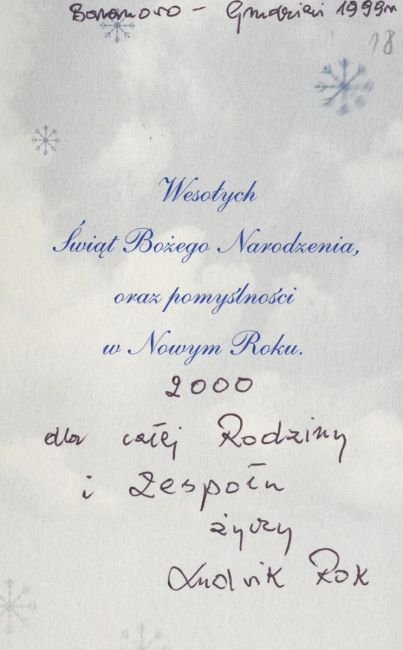 Baranowo - Grudzień 1999r
18
Wesołych
Świąt Bożego Narodzenia,
oraz pomyślności
w Nowym Roku.
2000
dla całej Rodziny
i Zespołu
życzy
Ludwik Rok